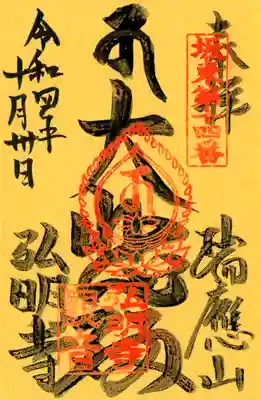 奉拝
坂東第十四番
瑞應山
大
弘明寺
令和四年
十月卅日
弘明寺